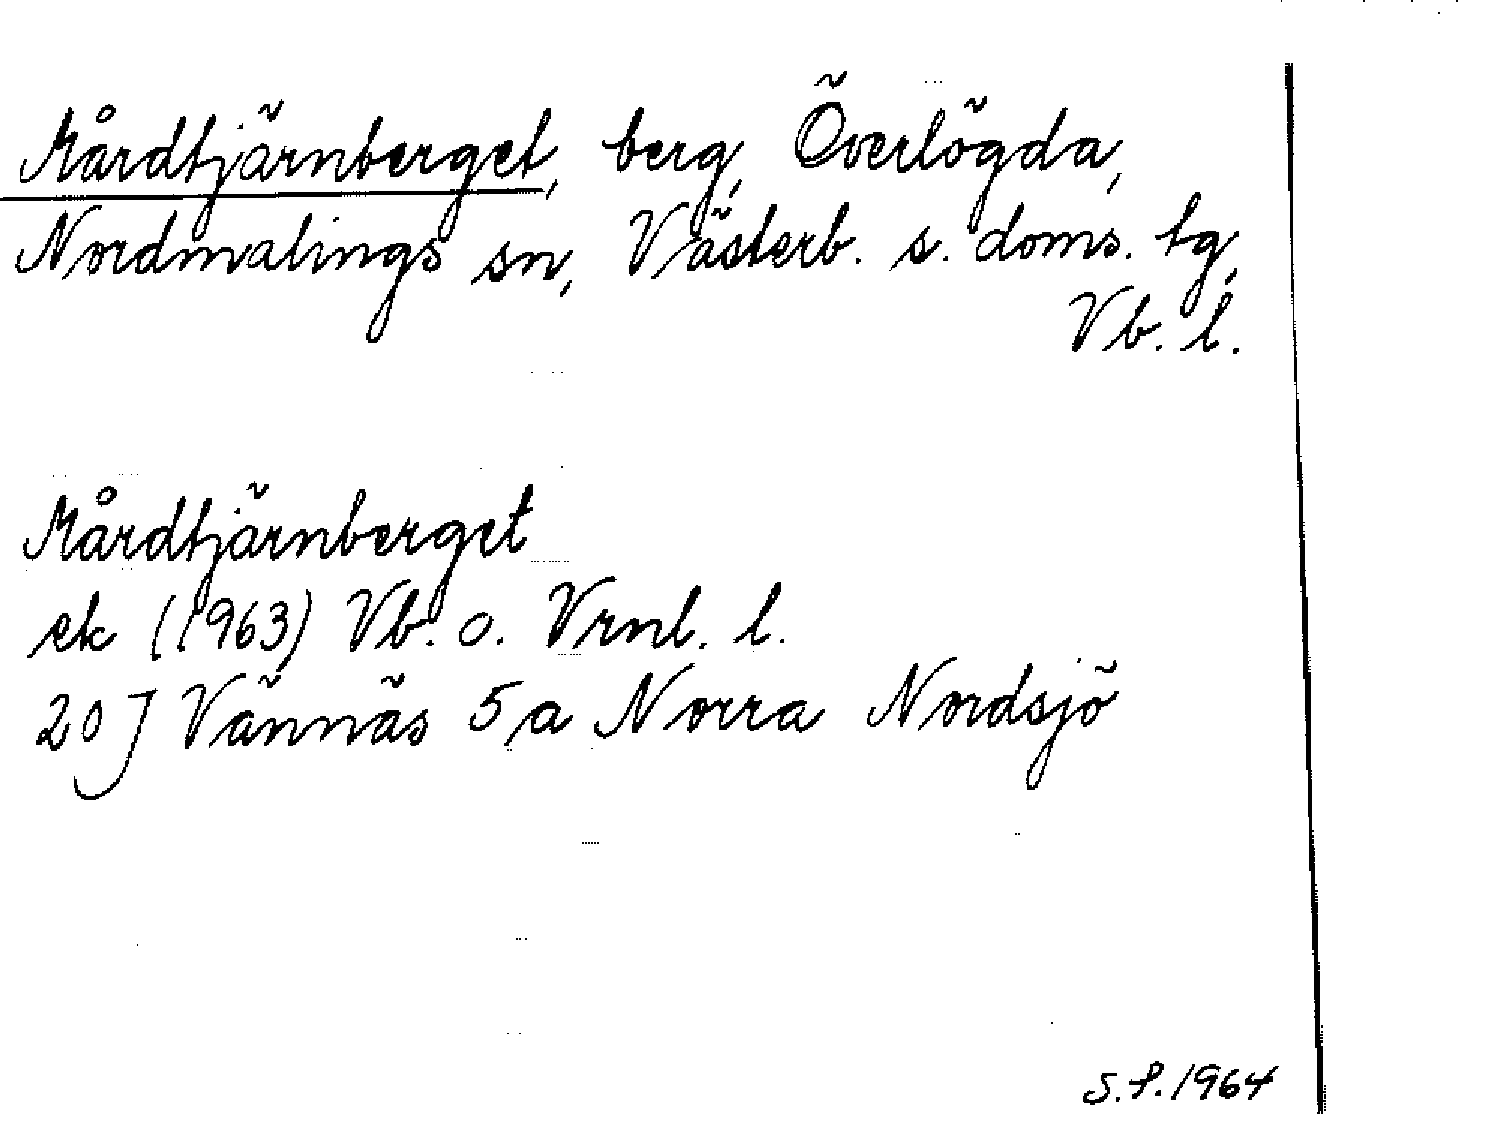 Mårdtjärnberget, berg, Överlögda,
Nordmalings sn, Västerb. s. doms. tg,
Vb. l.
Mårdtjärnberget
ek (1963) Vb. o. Vrnl. l.
20 J Vännäs 5 a Norra Nordsjö
S.P. 1964